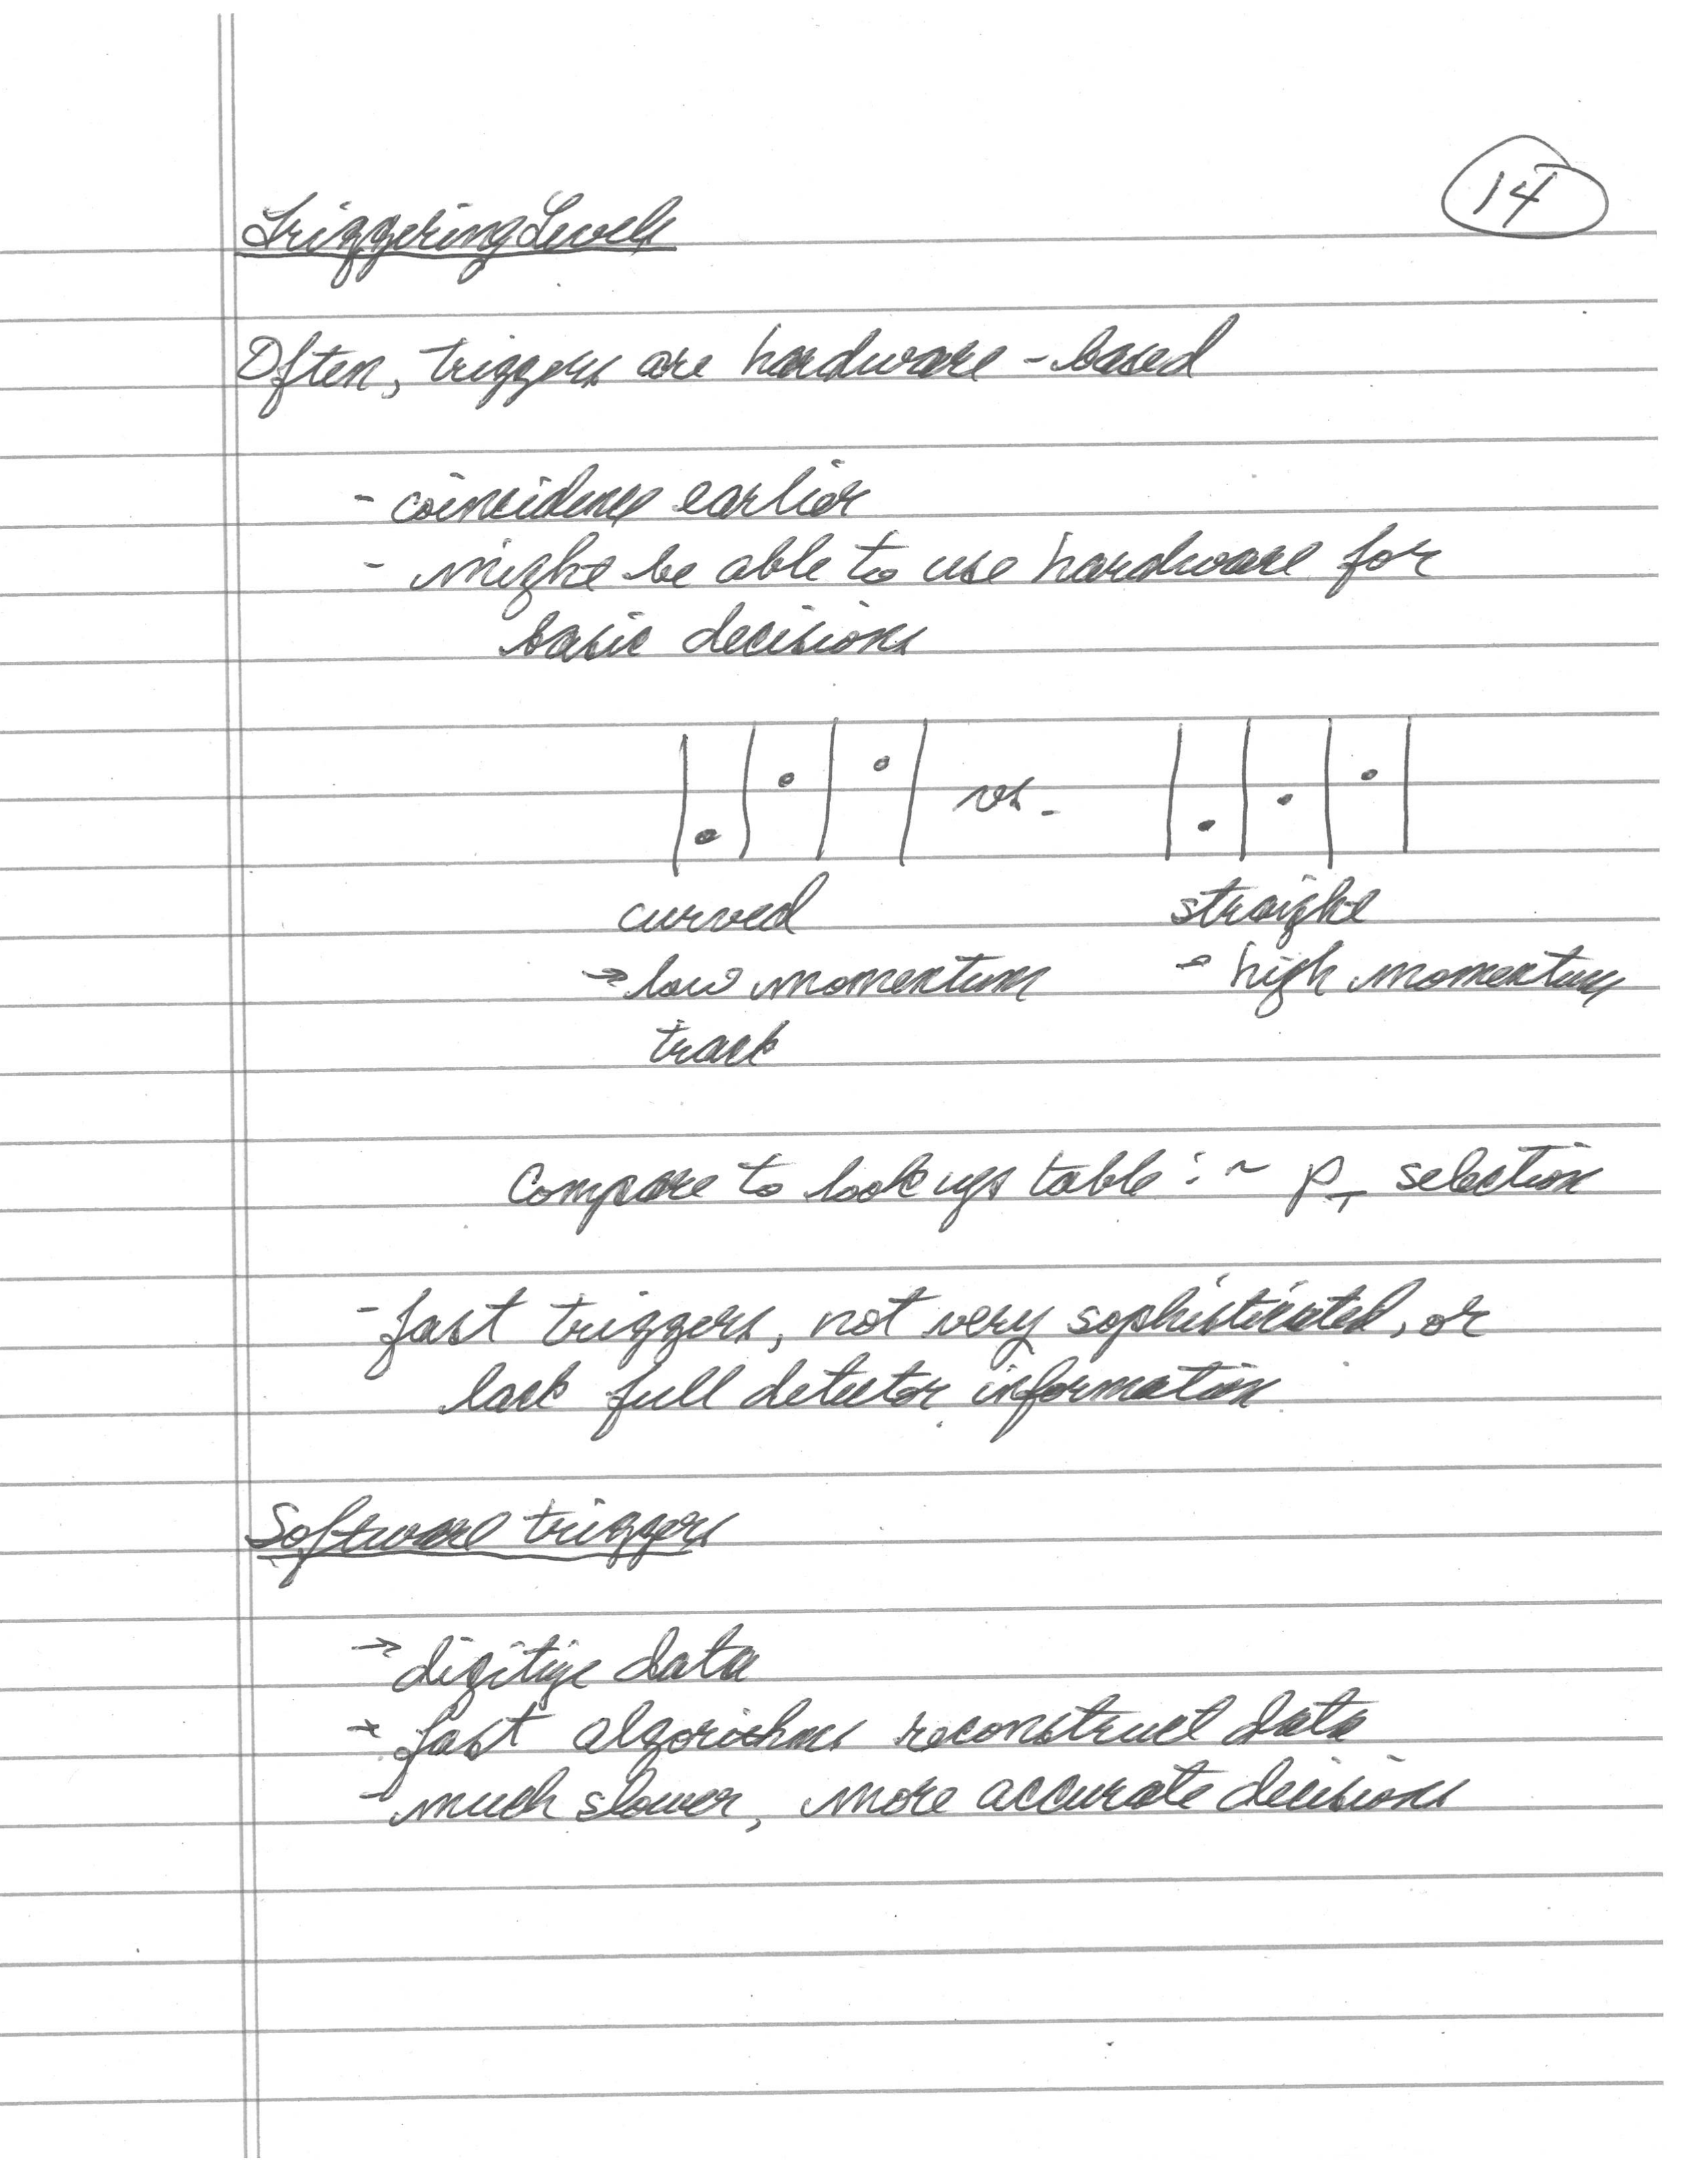 14
Triggering Levels
Often, triggers are hardware-based
- coincidence earlier
- might be able to use hardware for
basic decisions
vs.
curved straight
→ low momentum → high momentum
track
Compare to look up table : ~ p_T selection
- fast triggers, not very sophisticated, or
lack full detector information
Software triggers
→ digitize data
→ fast algorithms reconstruct data
- much slower, more accurate decisions